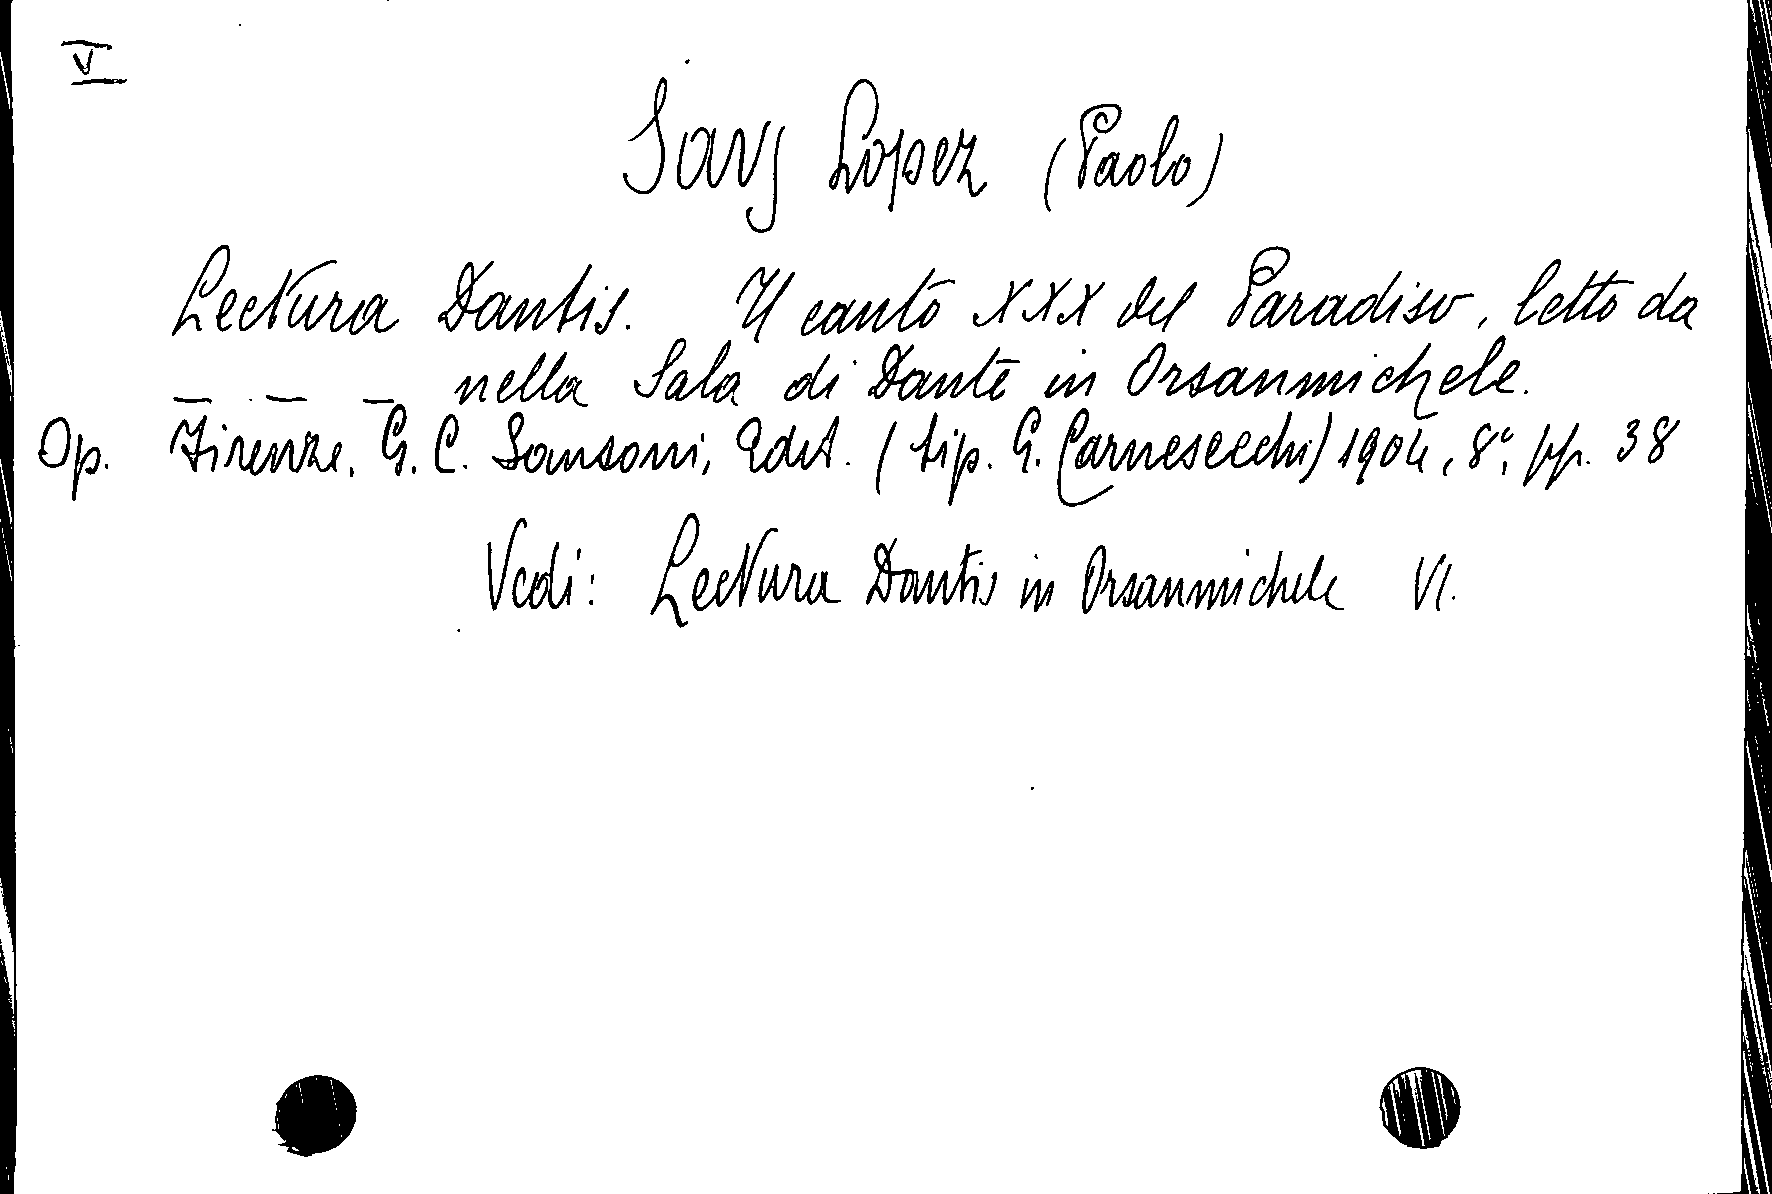 V
Savj Lopez (Paolo)
Lectura Dantis. Il canto XXX del Paradiso, letto da
_ _ _ nella Sala di Dante in Orsanmichele.
Op. Firenze, G. C. Sansoni, Edit. (tip. G. Carnesecchi) 1904, 8°, pp. 38
Vedi: Lectura Dantis in Orsanmichele VI.